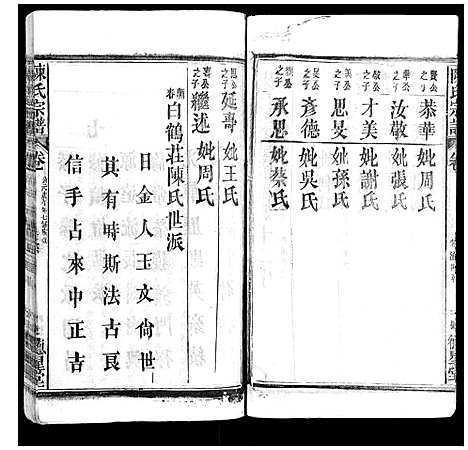 陳氏宗譜
卷
賢公之子 恭華 妣周氏
華公之子 汝敬 妣張氏
敬公之子 才美 妣謝氏
美公之子 思旻 妣孫氏
旻公之子 彥德 妣吳氏
之子 承恩 妣蔡氏
之子 延哥 妣王氏
之子 繼述 妣周氏
白鶴莊陳氏世派
日金人玉文尙世
其有時斯法古良
信手占來中正吉
陳氏宗譜
卷